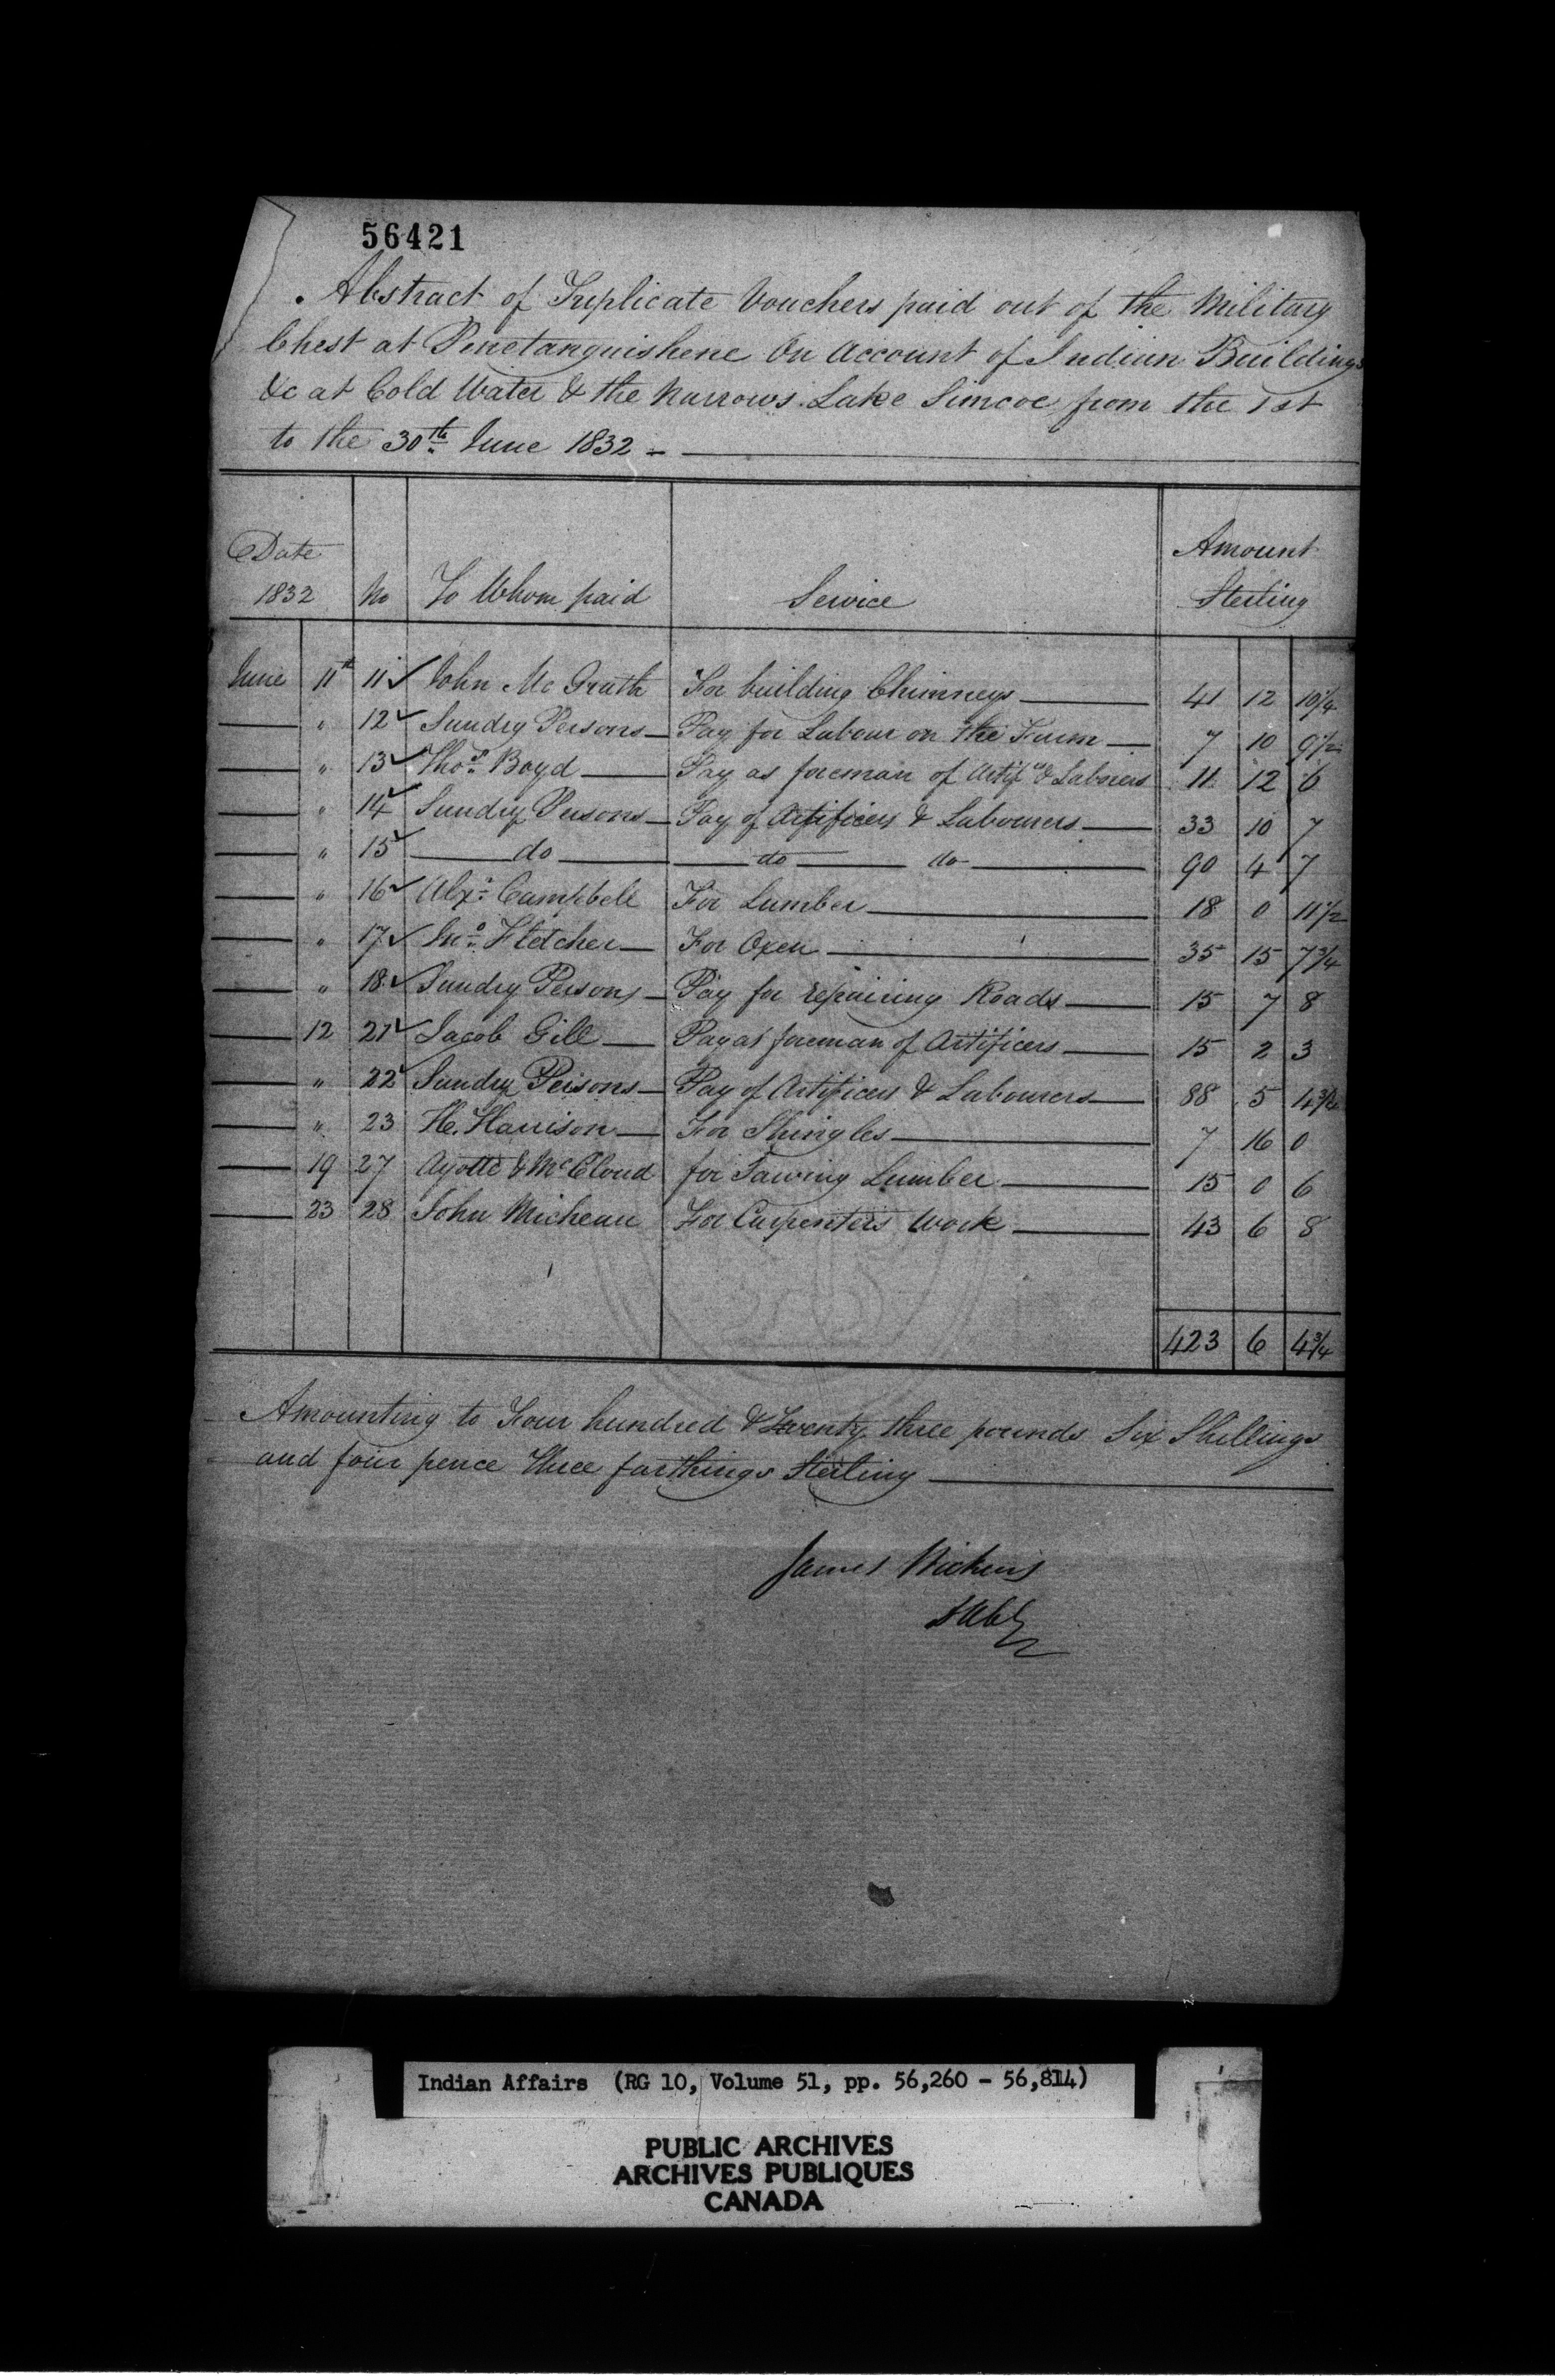 56421
Abstract of Triplicate Vouchers paid out of the Military
Chest at Penetanguishene On Account of Indian Buildings
&c at Cold Water & the Narrows Lake Simcoe from the 1st
to the 30th June 1832
Date 1832 No To Whom paid Service Amount Sterling
June 11th 11 ✓ John Mc Grath For building Chimneys 41 12 10 1/4
" 12 ✓ Sundry Persons Pay for Labour on the Farm 7 10 9 1/2
" 13 ✓ Thos Boyd Pay as foreman of Artifrs & Laborers 11 12 6
" 14 ✓ Sundry Persons Pay of Artificers & Labourers 33 10 7
" 15 ✓ do do do 90 4 7
" 16 ✓ Alxr Campbell For Lumber 18 0 11 1/2
" 17 ✓ Jno Fletcher For Oxen 35 15 7 3/4
" 18 ✓ Sundry Persons Pay for repairing Roads 15 7 8
12 21 ✓ Jacob Gill Pay as foreman of Artificers 15 2 3
" 22 ✓ Sundry Persons Pay of Artificers & Labourers 88 5 4 3/4
" 23 H. Harrison For Shingles 7 16 0
19 27 Ayotte & McCloud for Sawing Lumber 15 0 6
23 28 John Micheau For Carpenters Work 43 6 8
423 6 4 3/4
Amounting to Four hundred & Twenty three pounds Six Shillings
and four pence three farthings Sterling
James
Indian Affairs (RG 10, Volume 51, pp. 56,260 - 56,814)
PUBLIC ARCHIVES
ARCHIVES PUBLIQUES
CANADA